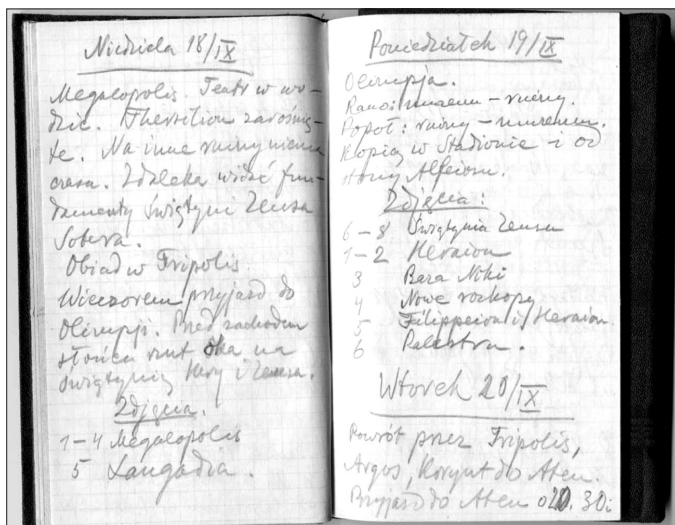 Niedziela 18/IX
Megalopolis. Teatr w wo-
dzie. Thersilion zarośnię-
te. Na inne ruiny niema
czasu. Zdaleka widać fun-
damenty świątyni Zeusa
Sotera.
Obiad w Tripolis.
Wieczorem przyjazd do
Olimpji. Przed zachodem
słońca rzut oka na
świątynię Hery i Zeusa.
Zdjęcia.
1-4 Megalopolis
5 Langadia.
Poniedziałek 19/IX
Olimpja.
Rano: muzeum - ruiny.
Popoł: ruiny - muzeum.
Kopią w Stadionie - i od
strony Alfeiosu.
Zdjęcia:
6-8 Świątynia Zeusa
1-2 Heraion
3 Baza Niki
4 Nowe rozkopy
5 Filippeion i Heraion.
6 Palestra.
Wtorek 20/IX
Powrót przez Tripolis,
Argos, Korynt do Aten.
Przyjazd do Aten o 20.30